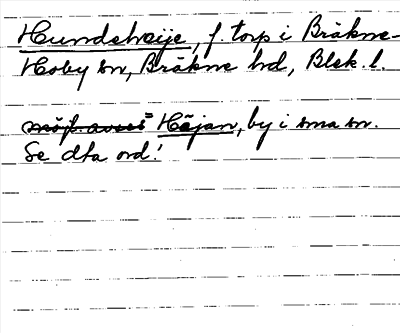 Hundsheije, f. torp i Bräkne-
Hoby sn, Bräkne hd, Blek. l.
möjl. avses = Höjan, by i sma sn.
Se dta ord!